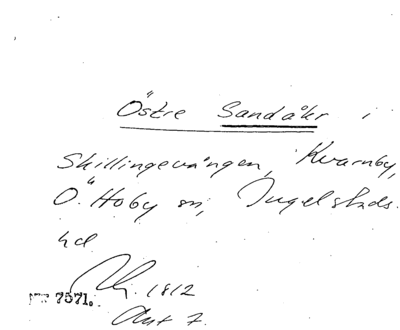 Östre Sandåkr i
Skillingevången, Kvarnby,
Ö. Hoby sn, Ingelstads
hd
1812
7571.
Akt 7.